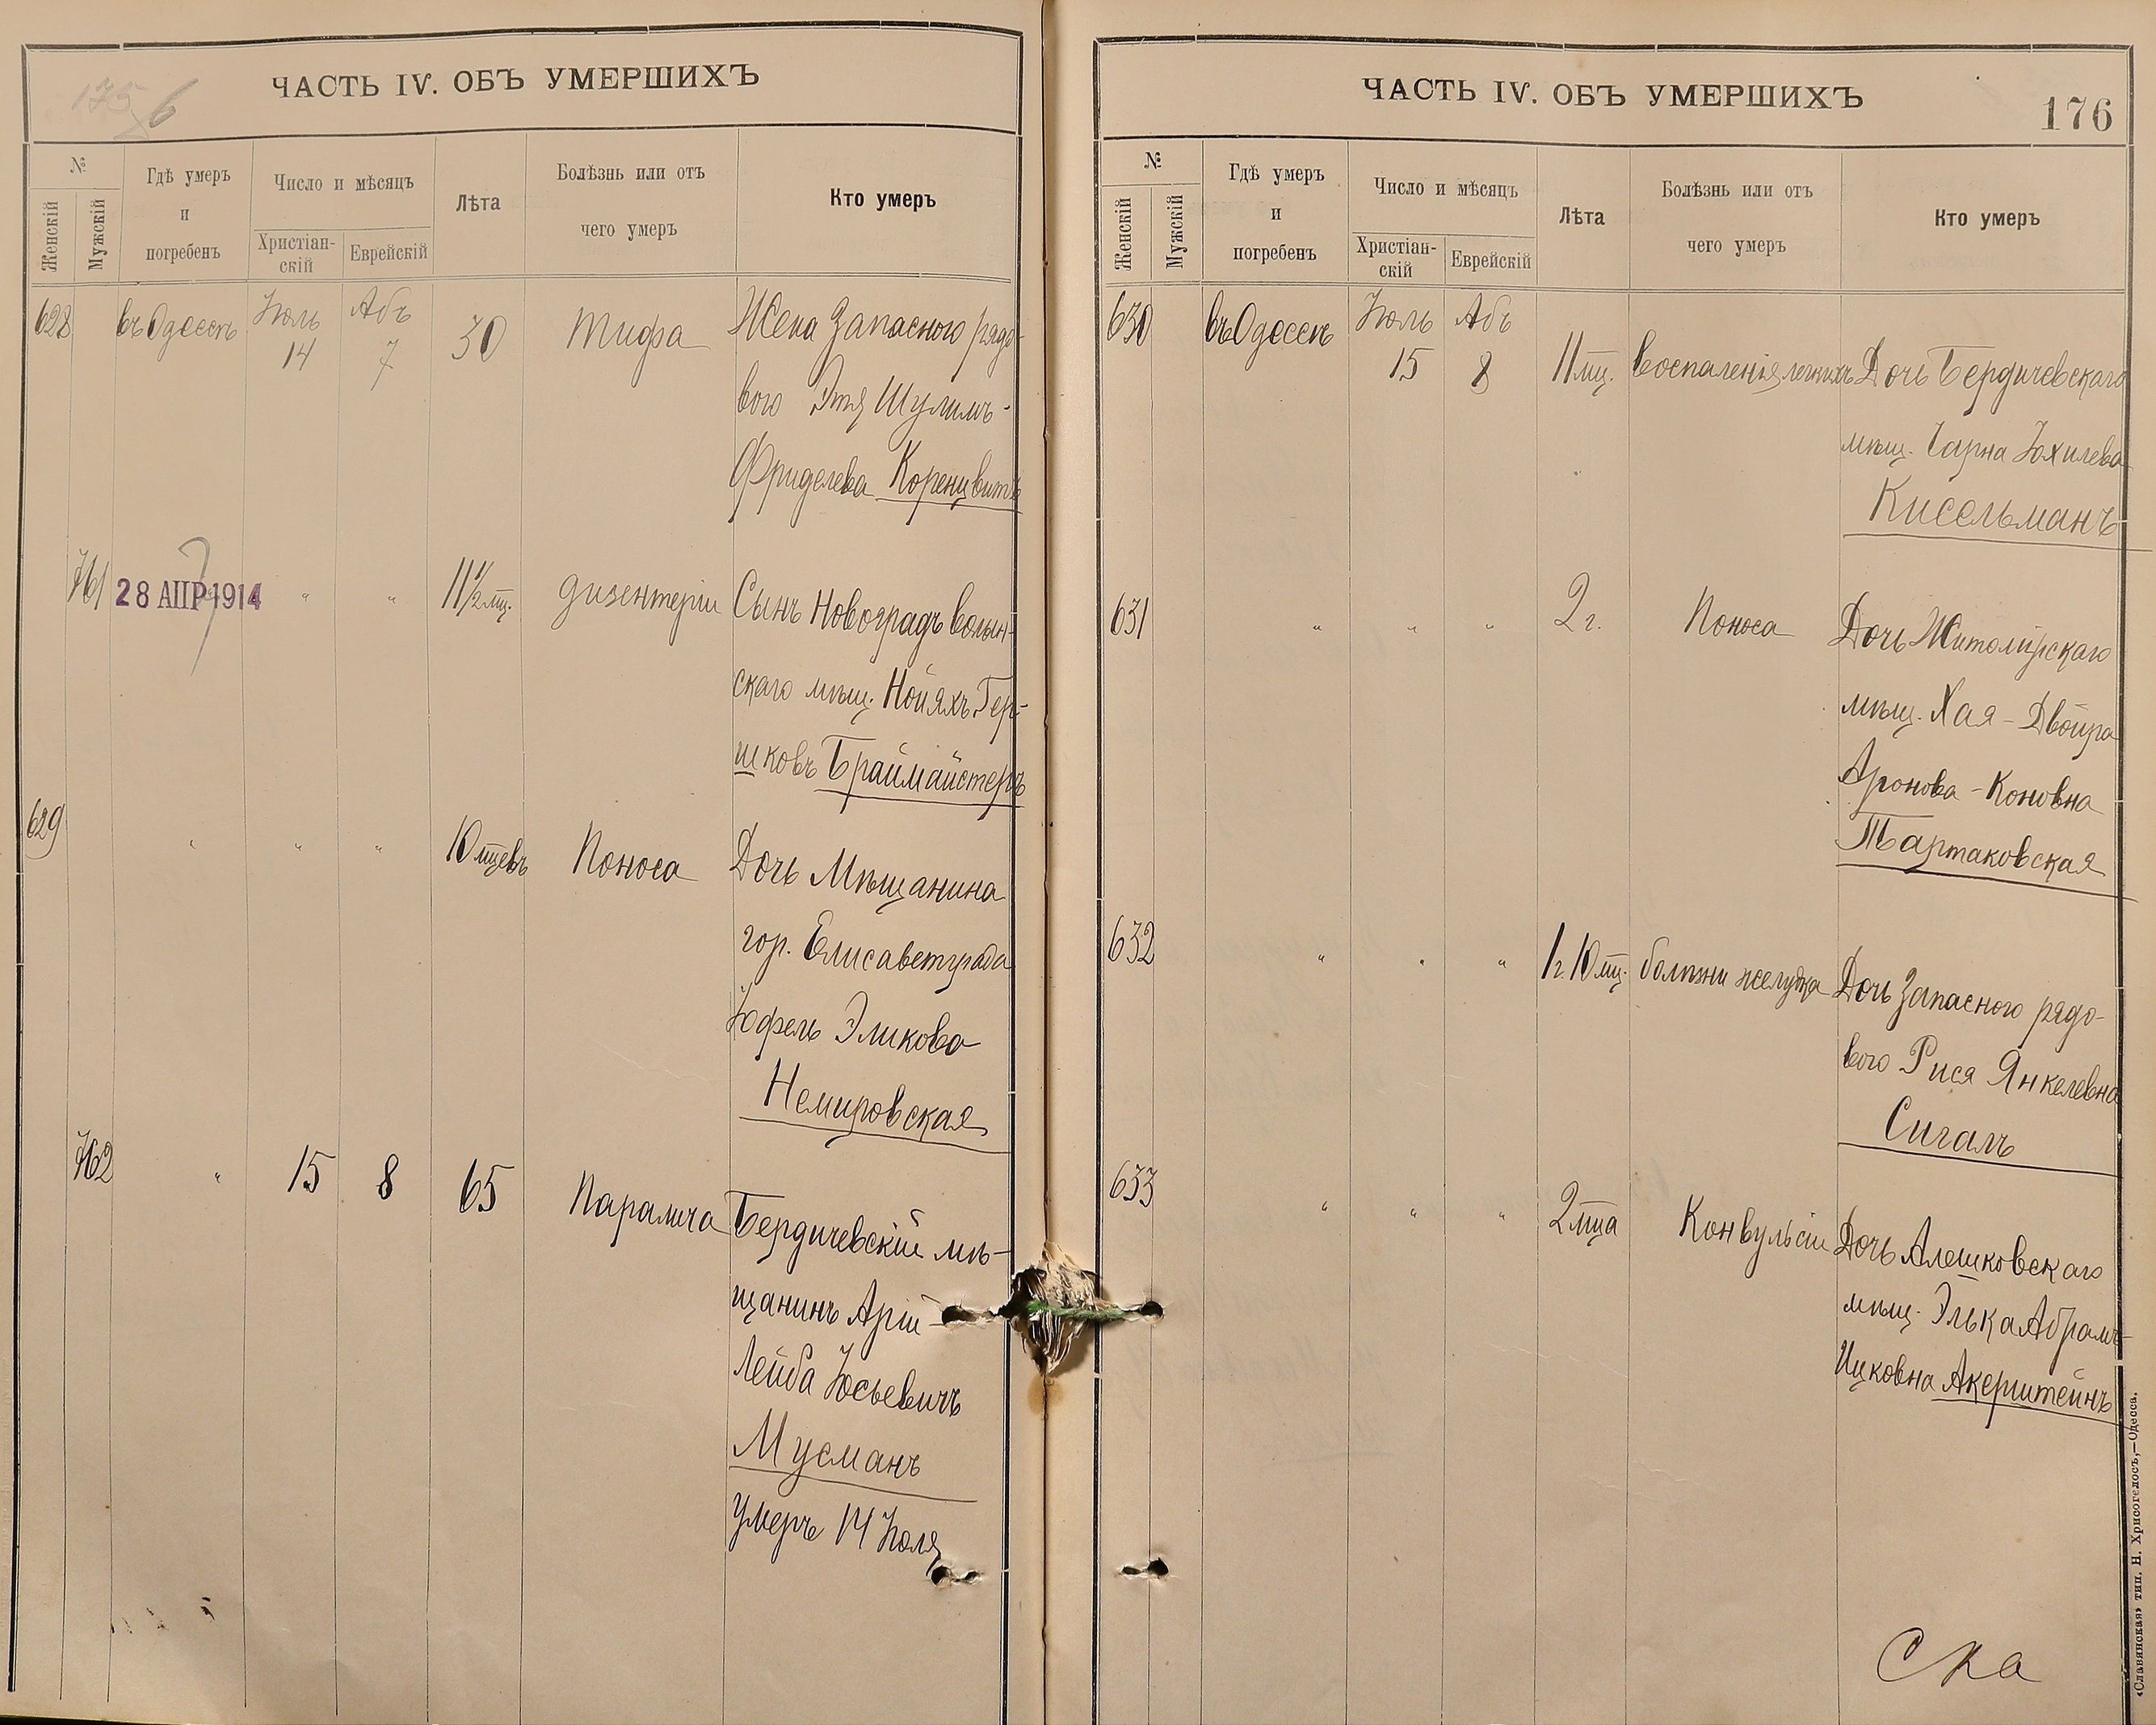 175 6
ЧАСТЬ IV. ОБЪ УМЕРШИХЪ
№
Женскій
Мужскій
Гдѣ умеръ
и
погребенъ
Число и мѣсяцъ
Христіан-
скій
Еврейскій
Лѣта
Болѣзнь или отъ
чего умеръ
Кто умеръ
628 въ Одессѣ Іюль Абъ
14 7 30 Тифа Жена Запасного рядо-
вого Этя Шулимъ-
Фриделева Коренцвитъ
761 28 АПР 1914 " " 11 1/2 мц. дизентеріи Сынъ Новоградъ волын-
скаго мѣщ. Нойяхъ Гер-
шковъ Браймайстеръ
629 " " " 10 мцевъ Поноса Дочь Мѣщанина
гор. Елисаветграда
Эликова
Немировская
762 " 15 8 65 Паралича Бердичевскій мѣ-
щанинъ Арій-
Лейба Іосьевичъ
Мусманъ
умеръ 14 Іюля
ЧАСТЬ IV. ОБЪ УМЕРШИХЪ
176
№
Женскій
Мужскій
Гдѣ умеръ
и
погребенъ
Число и мѣсяцъ
Христіан-
скій
Еврейскій
Лѣта
Болѣзнь или отъ
чего умеръ
Кто умеръ
630 въ Одессѣ Іюль Абъ
15 8 11 мц. воспаленія легкихъ Дочь Бердичевскаго
мѣщ. Чарна Іохилева
Кисельманъ
631 " " " 2 г. Поноса Дочь Житомірскаго
мѣщ. Хая-Двойра
Аронова-Коновна
Тартаковская
632 " " " 1 г. 10 мц. болѣзни желудка Дочь Запасного рядо-
вого Рися Янкелевна
Сигалъ
633 " " " 2 мца Конвульсіи Дочь Алешковскаго
мѣщ. Элька Абрамъ-
Ицковна Акерштейнъ
«Славянская» тип. Н. Хрисогелосъ,—Одесса.